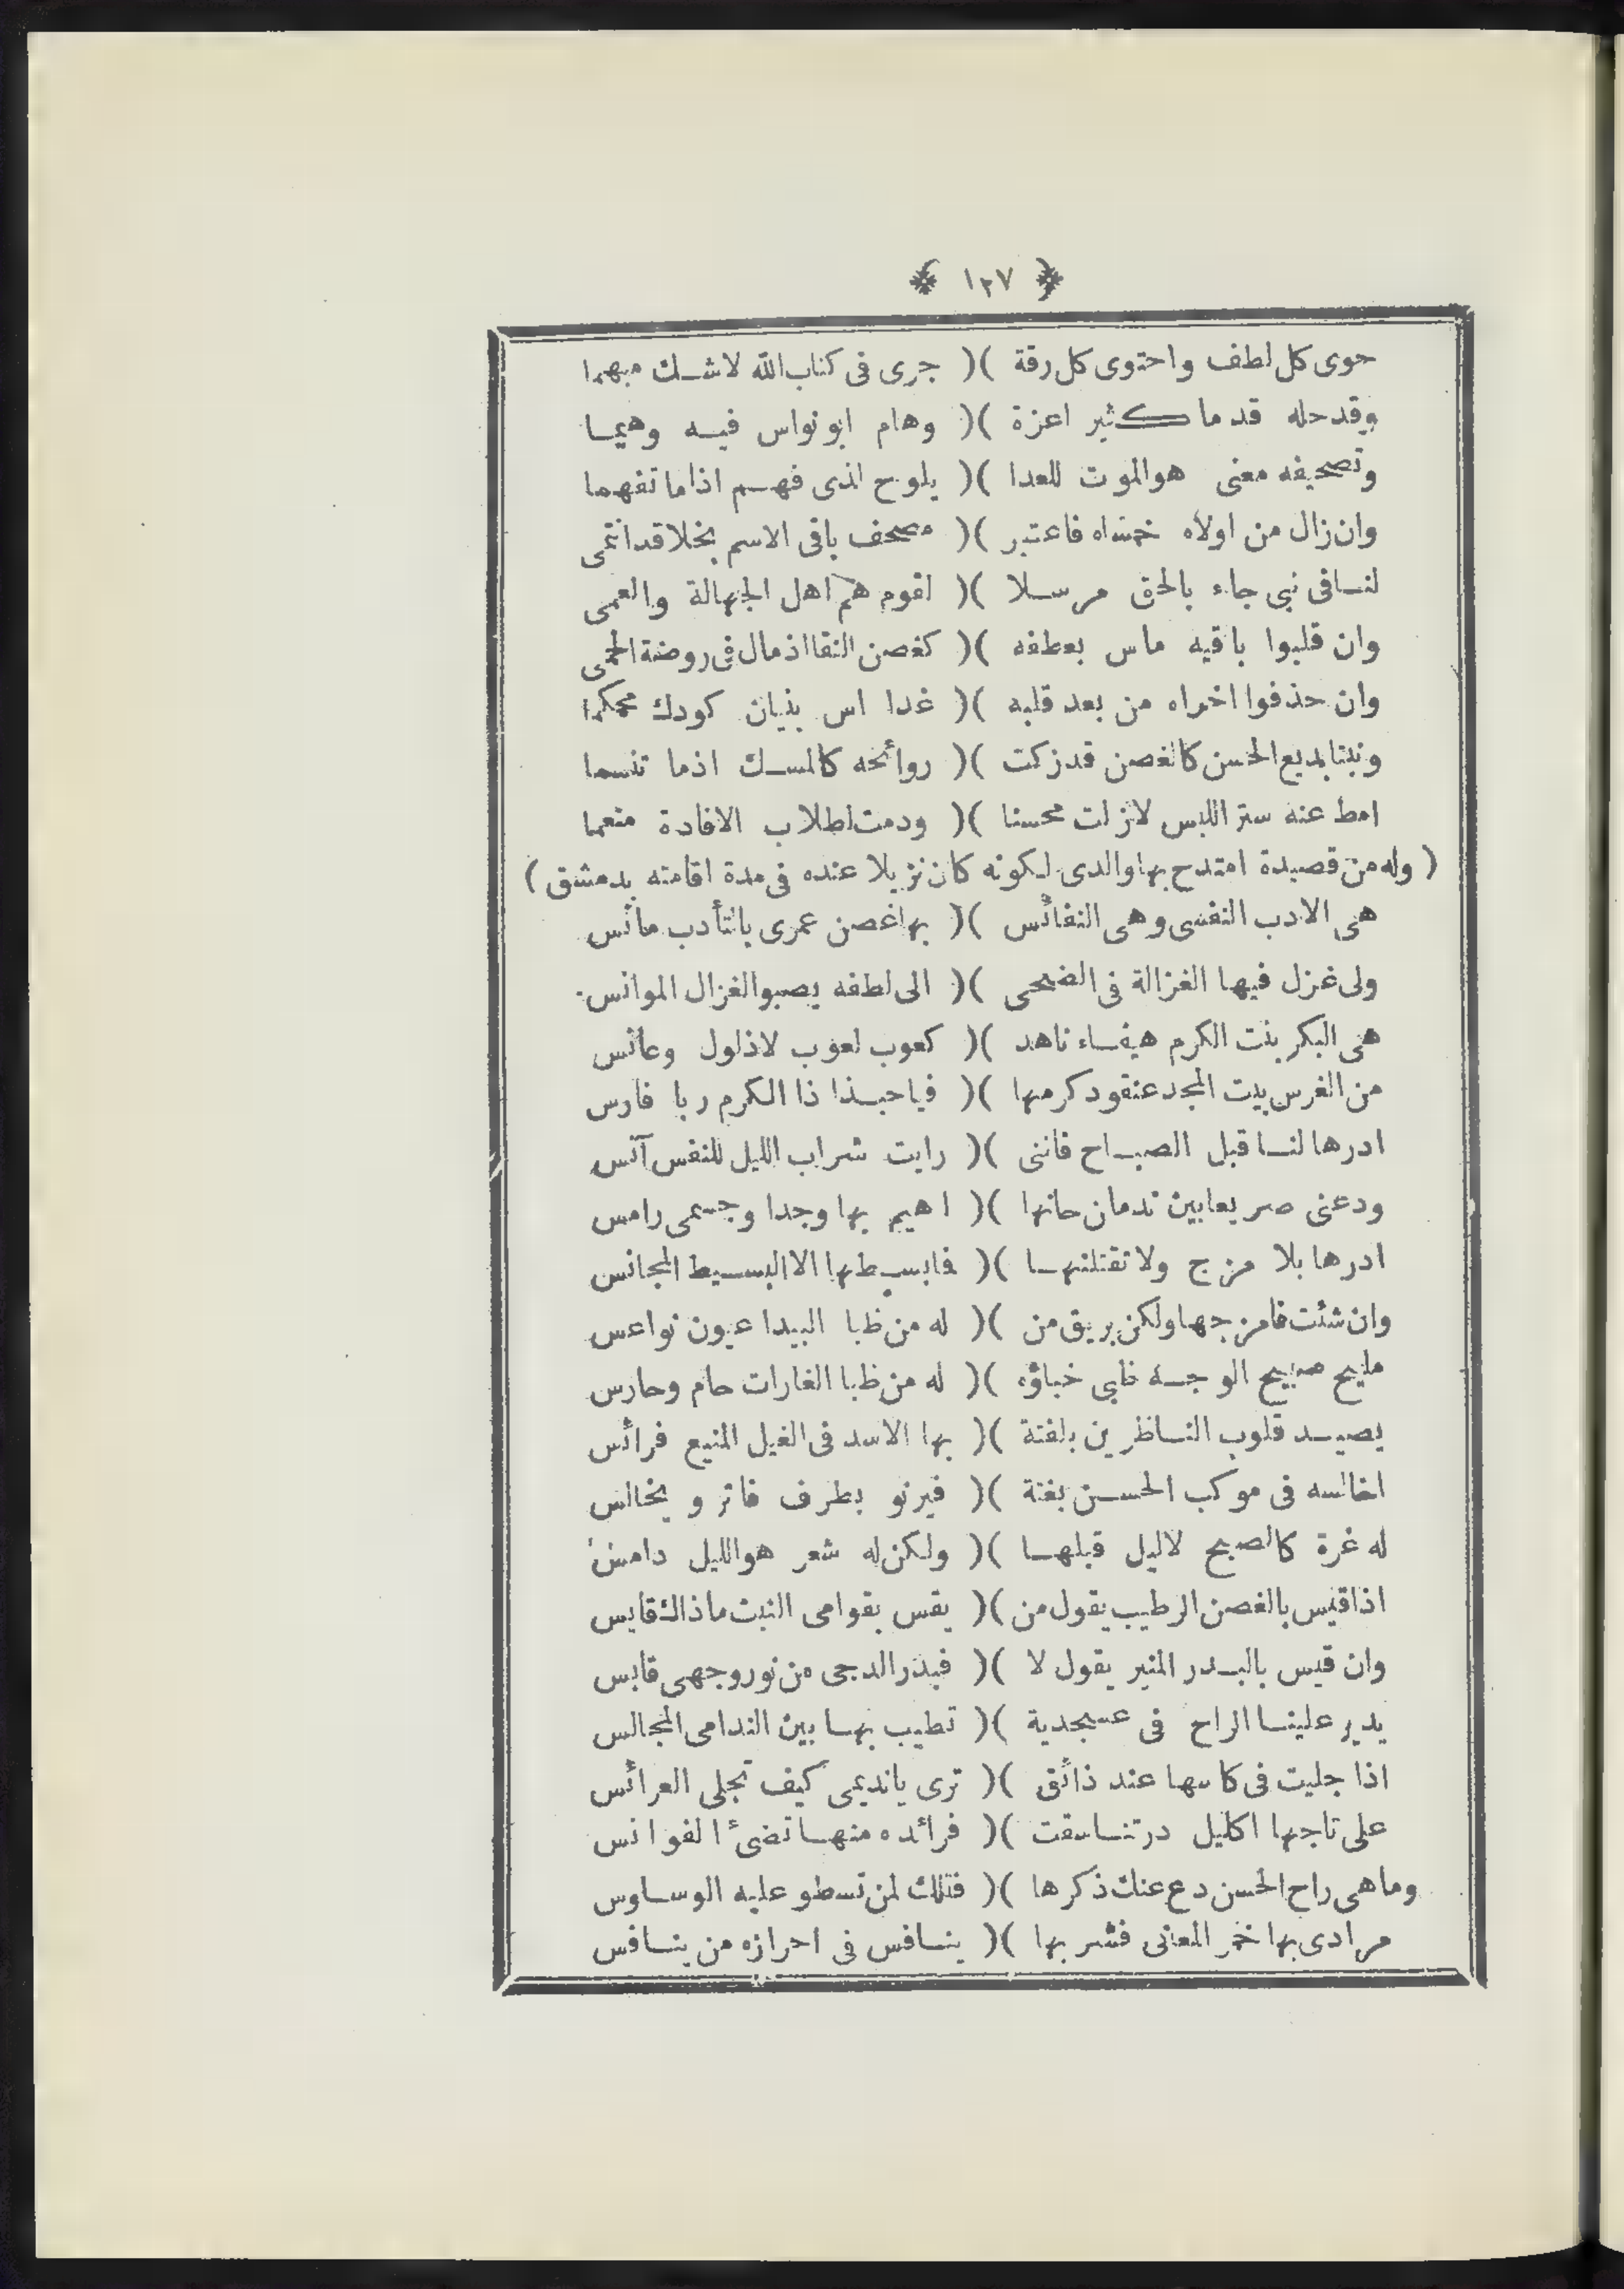 ﴿ ١٢٧ ﴾
حوى كل لطف واحتوى كل رقة )( جرى فى كتاب الله لاشك مبهما
وقد حله قدما كثير اعزة )( وهام ابو نواس فيه وهيما
وتصحيفه معنى هو الموت للعدا )( يلوح لذى فهم اذا ما تفهما
وان زال من اولاه خمساه فاعتبر )( مصحف باقى الاسم بخلا قد انتمى
لنا فى نبى جاء بالحق مرسلا )( لقوم هم اهل الجهالة والعمى
وان قلبوا باقيه ماس بعطفه )( كغصن النقا اذ مال فى روضة الحمى
وان حذفوا اخراه من بعد قلبه )( غدا اس بنيان كودك محكما
ونبتا بديع الحسن كالغصن قد زكت )( روائحه كالمسك اذما تنسما
امط عنه ستر اللبس لازلت محسنا )( ودمت لطلاب الافادة منعما
( وله من قصيدة امتدح بها والدى لكونه كان نزيلا عنده فى مدة اقامته بدمشق )
هى الادب النفسى وهى النفائس )( بها غصن عمرى بالتأدب مائس
ولى غزل فيها الغزالة فى الضحى )( الى لطفه يصبو الغزال الموانس
هى البكر بنت الكرم هيفاء ناهد )( كعوب لعوب لاذلول وعانس
من الغرس بيت المجد عنقود كرمها )( فيا حبذا ذا الكرم ربا فارس
ادرها لنا قبل الصباح فاننى )( رايت شراب الليل للنفس آنس
ودعنى صريعا بين ندمان حانها )( اهيم بها وجدا وجسمى رامس
ادرها بلا مزج ولا تقتلنها )( فابسطها الا البسيط المجانس
وان شئت فامزجها ولكن بريق من )( له من ظبا البيدا عيون نواعس
مليح صبيح الوجه ظبى خباؤه )( له من ظبا الغارات حام وحارس
يصيد قلوب الناظرين بلفتة )( بها الاسد فى الغيل المنيع فرائس
اخالسه فى موكب الحسن بغتة )( فيرنو بطرف فاتر ويخالس
له غرة كالصبح لاليل قبلها )( ولكن له شعر هو الليل دامس
اذا قيس بالغصن الرطيب يقول من )( يقس بقوامى النبت ماذاك قايس
وان قيس بالبدر المنير يقول لا )( فبدر الدجى من نور وجهى قابس
يدير علينا الراح فى عسجدية )( تطيب بها بين الندامى المجالس
اذا جليت فى كاسها عند ذائق )( ترى ياندیمى كيف تجلى العرائس
على تاجها اكليل در تناسقت )( فرائده منها تضئ الفوانس
وما هى راح الحسن دع عنك ذكرها )( فتلك لمن تسطو عليه الوساوس
مرادى بها خمر المعانى فشربها )( ينافس فى احرازه من ينافس